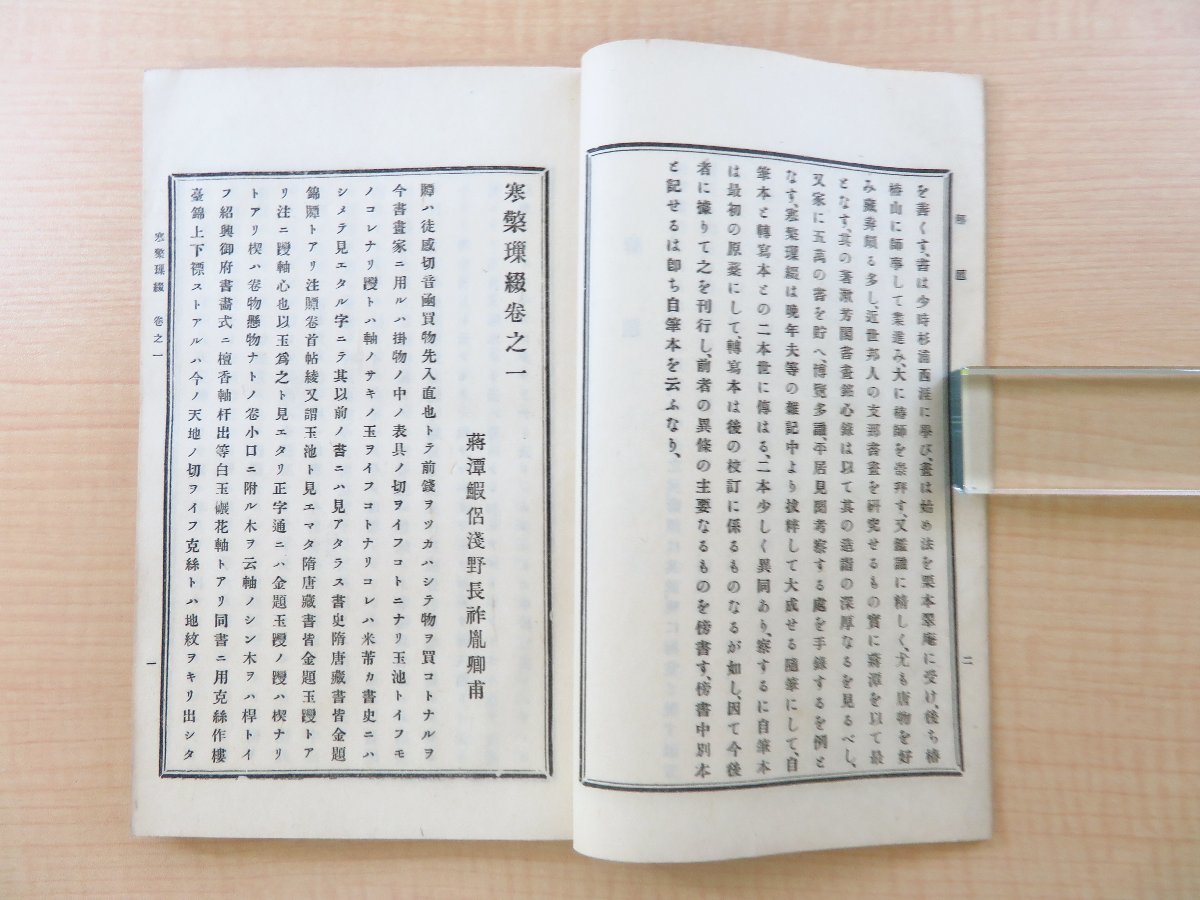 を善くす、書は少時杉浦西涯に學び、畫は始め法を栗本翠庵に受け、後ち椿
椿山に師事して業進み、大に椿師を崇拜す、又鑑識に精しく、尤も唐物を好
み藏弆頗る多し、近世邦人の支那書畫を研究せるもの實に蔣潭を以て最
となす、其の著漱芳閣書畫銘心錄は以て其の造詣の深厚なるを見るべし、
又家に五萬の書を貯へ、博覽多識、平居見聞考察する處を手錄するを例と
なす、寒檠璅綴は晩年夫等の雜記中より拔粹して大成せる隨筆にして、自
筆本と轉寫本との二本世に傳はる、二本少しく異同あり、察するに自筆本
は最初の原藁にして、轉寫本は後の校訂に係るものなるが如し、因て今後
者に據りて之を刊行し、前者の異條の主要なるものを傍書す、傍書中別本
と記せるは卽ち自筆本を云ふなり、
二
寒檠璅綴卷之一
蔣潭鰕侶淺野長祚胤卿甫
賺ハ徒感切音凾買物先入直也トテ前錢ヲツカハシテ物ヲ買コトナルヲ
今書畫家ニ用ルハ掛物ノ中ノ表具ノ切ヲイフコトニナリ玉池トイフモ
ノコレナリ躞トハ軸ノサキノ玉ヲイフコトナリコレハ米芾カ書史ニハ
シメテ見エタル字ニテ其以前ノ書ニハ見アタラス書史隋唐藏書皆金題
錦贉トアリ注贉卷首帖綾又謂玉池ト見エマタ隋唐藏書皆金題玉躞トア
リ注ニ躞軸心也以玉爲之ト見エタリ正字通ニハ金題玉躞ノ躞ハ楔ナリ
トアリ楔ハ卷物懸物ナトノ卷小口ニ附ル木ヲ云軸ノシン木ヲハ桿トイ
フ紹興御府書畫式ニ檀香軸杆出等白玉襯花軸トアリ同書ニ用克絲作樓
臺錦上下褾ストアルハ今ノ天地ノ切ヲイフ克絲トハ地紋ヲキリ出シタ
寒檠璅綴 卷之一
一